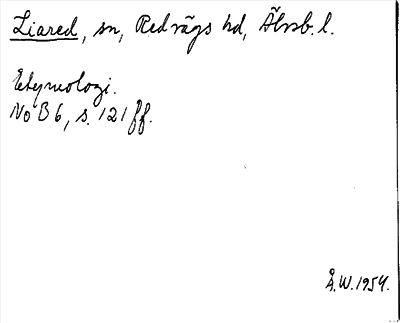 Liared, sn, Redvägs hd, Älvsb. l.
Etymologi.
NoB 6, s. 121 ff.
Å.W. 1954.